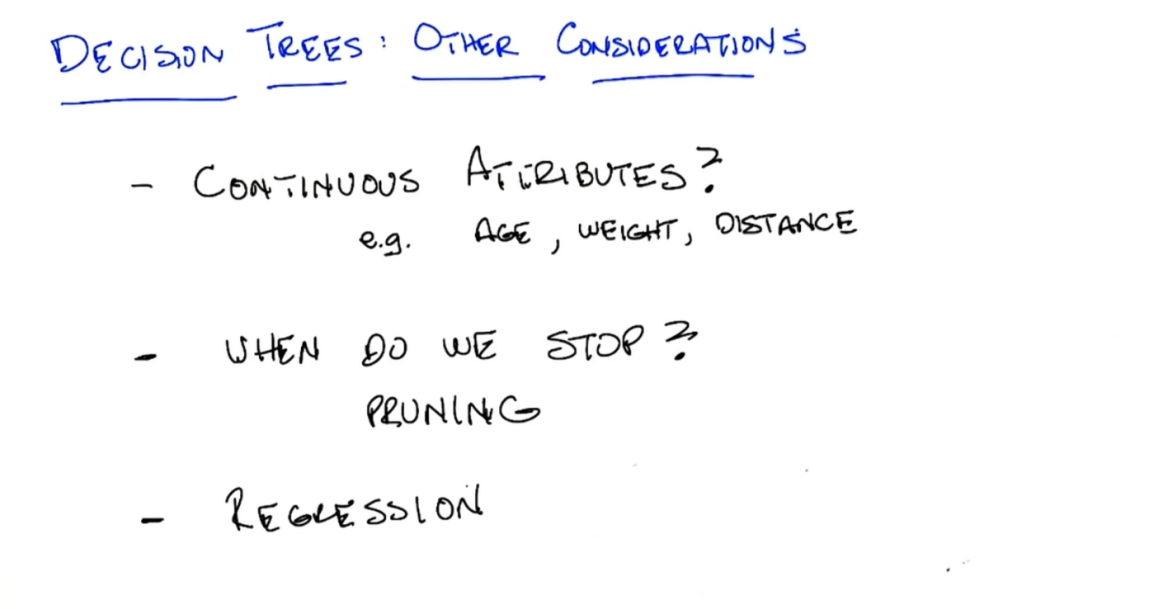 DECISION TREES: OTHER CONSIDERATIONS
- CONTINUOUS ATTRIBUTES?
e.g. AGE, WEIGHT, DISTANCE
- WHEN DO WE STOP?
PRUNING
- REGRESSION